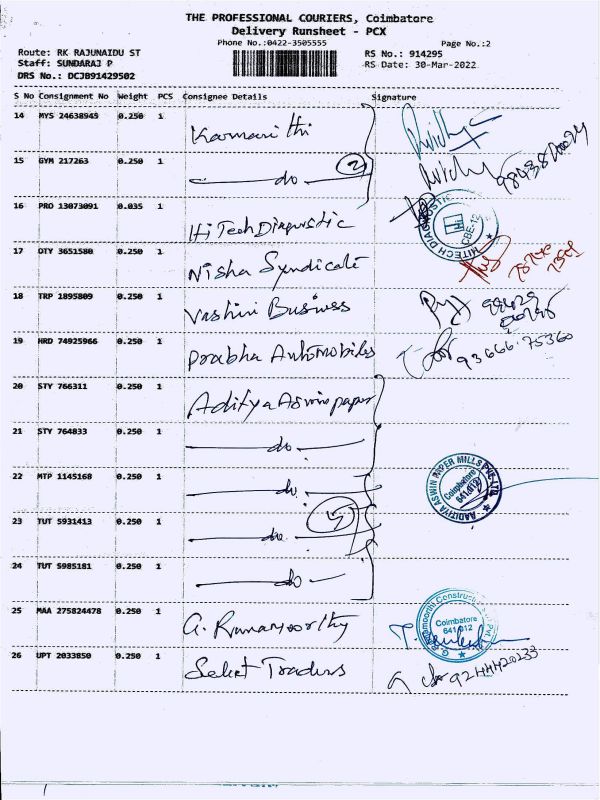 THE PROFESSIONAL COURIERS, Coimbatore
Delivery Runsheet - PCX
Phone No.:0422-3505555 Page No.:2
Route: RK RAJUNAIDU ST RS No.: 914295
Staff: SUNDARAJ P RS Date: 30-Mar-2022
DRS No.: DCJB91429502
S No Consignment No Weight PCS Consignee Details Signature
14 MYS 24638945 0.250 1
15 GYM 217263 0.250 1 do 2
16 PRO 13073091 0.035 1 Hi Tech Diagnostic
HITECH DIAGNOSTIC CBE-12
17 OTY 3651580 0.250 1 Nisha Syndicate
18 TRP 1895809 0.250 1 Vashini Business
19 HRD 74925966 0.250 1 Prabha Automobiles 93666.75360
20 STY 766311 0.250 1 Aditya Aswin paper
21 STY 764833 0.250 1 do
22 MTP 1145168 0.250 1 do
AADITYA ASWIN PAPER MILLS PVT LTD. Coimbatore 641 012
23 TUT 5931413 0.250 1 do 5
24 TUT 5985181 0.250 1 do
25 MAA 275824478 0.250 1 G. Ramamoorthy
Coimbatore 641 012
26 UPT 2033850 0.250 1 Select Traders